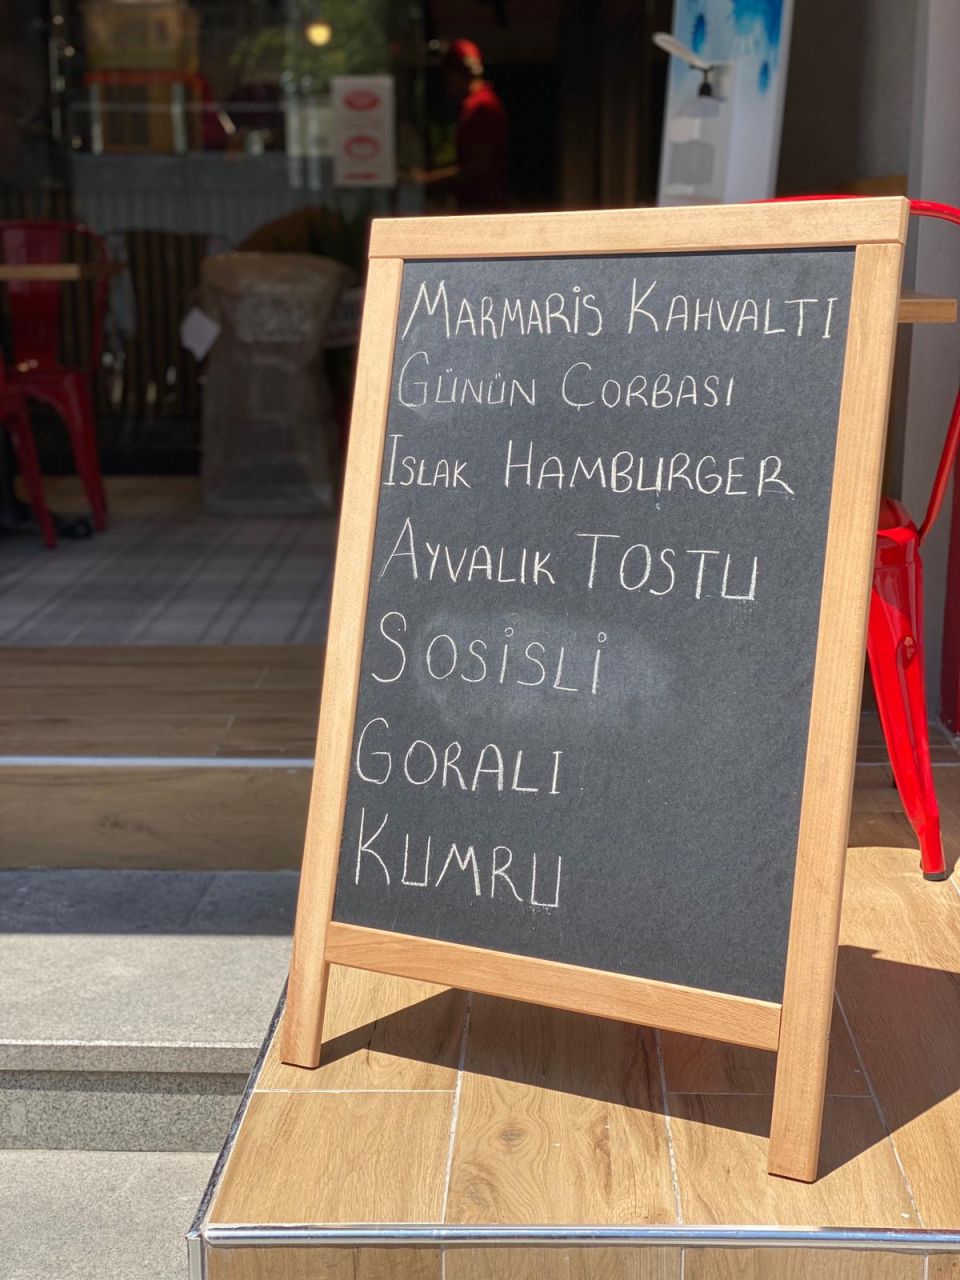 MARMARİS KAHVALTI
GÜNÜN ÇORBASI
ISLAK HAMBURGER
AYVALIK TOSTU
SOSİSLİ
GORALI
KUMRU